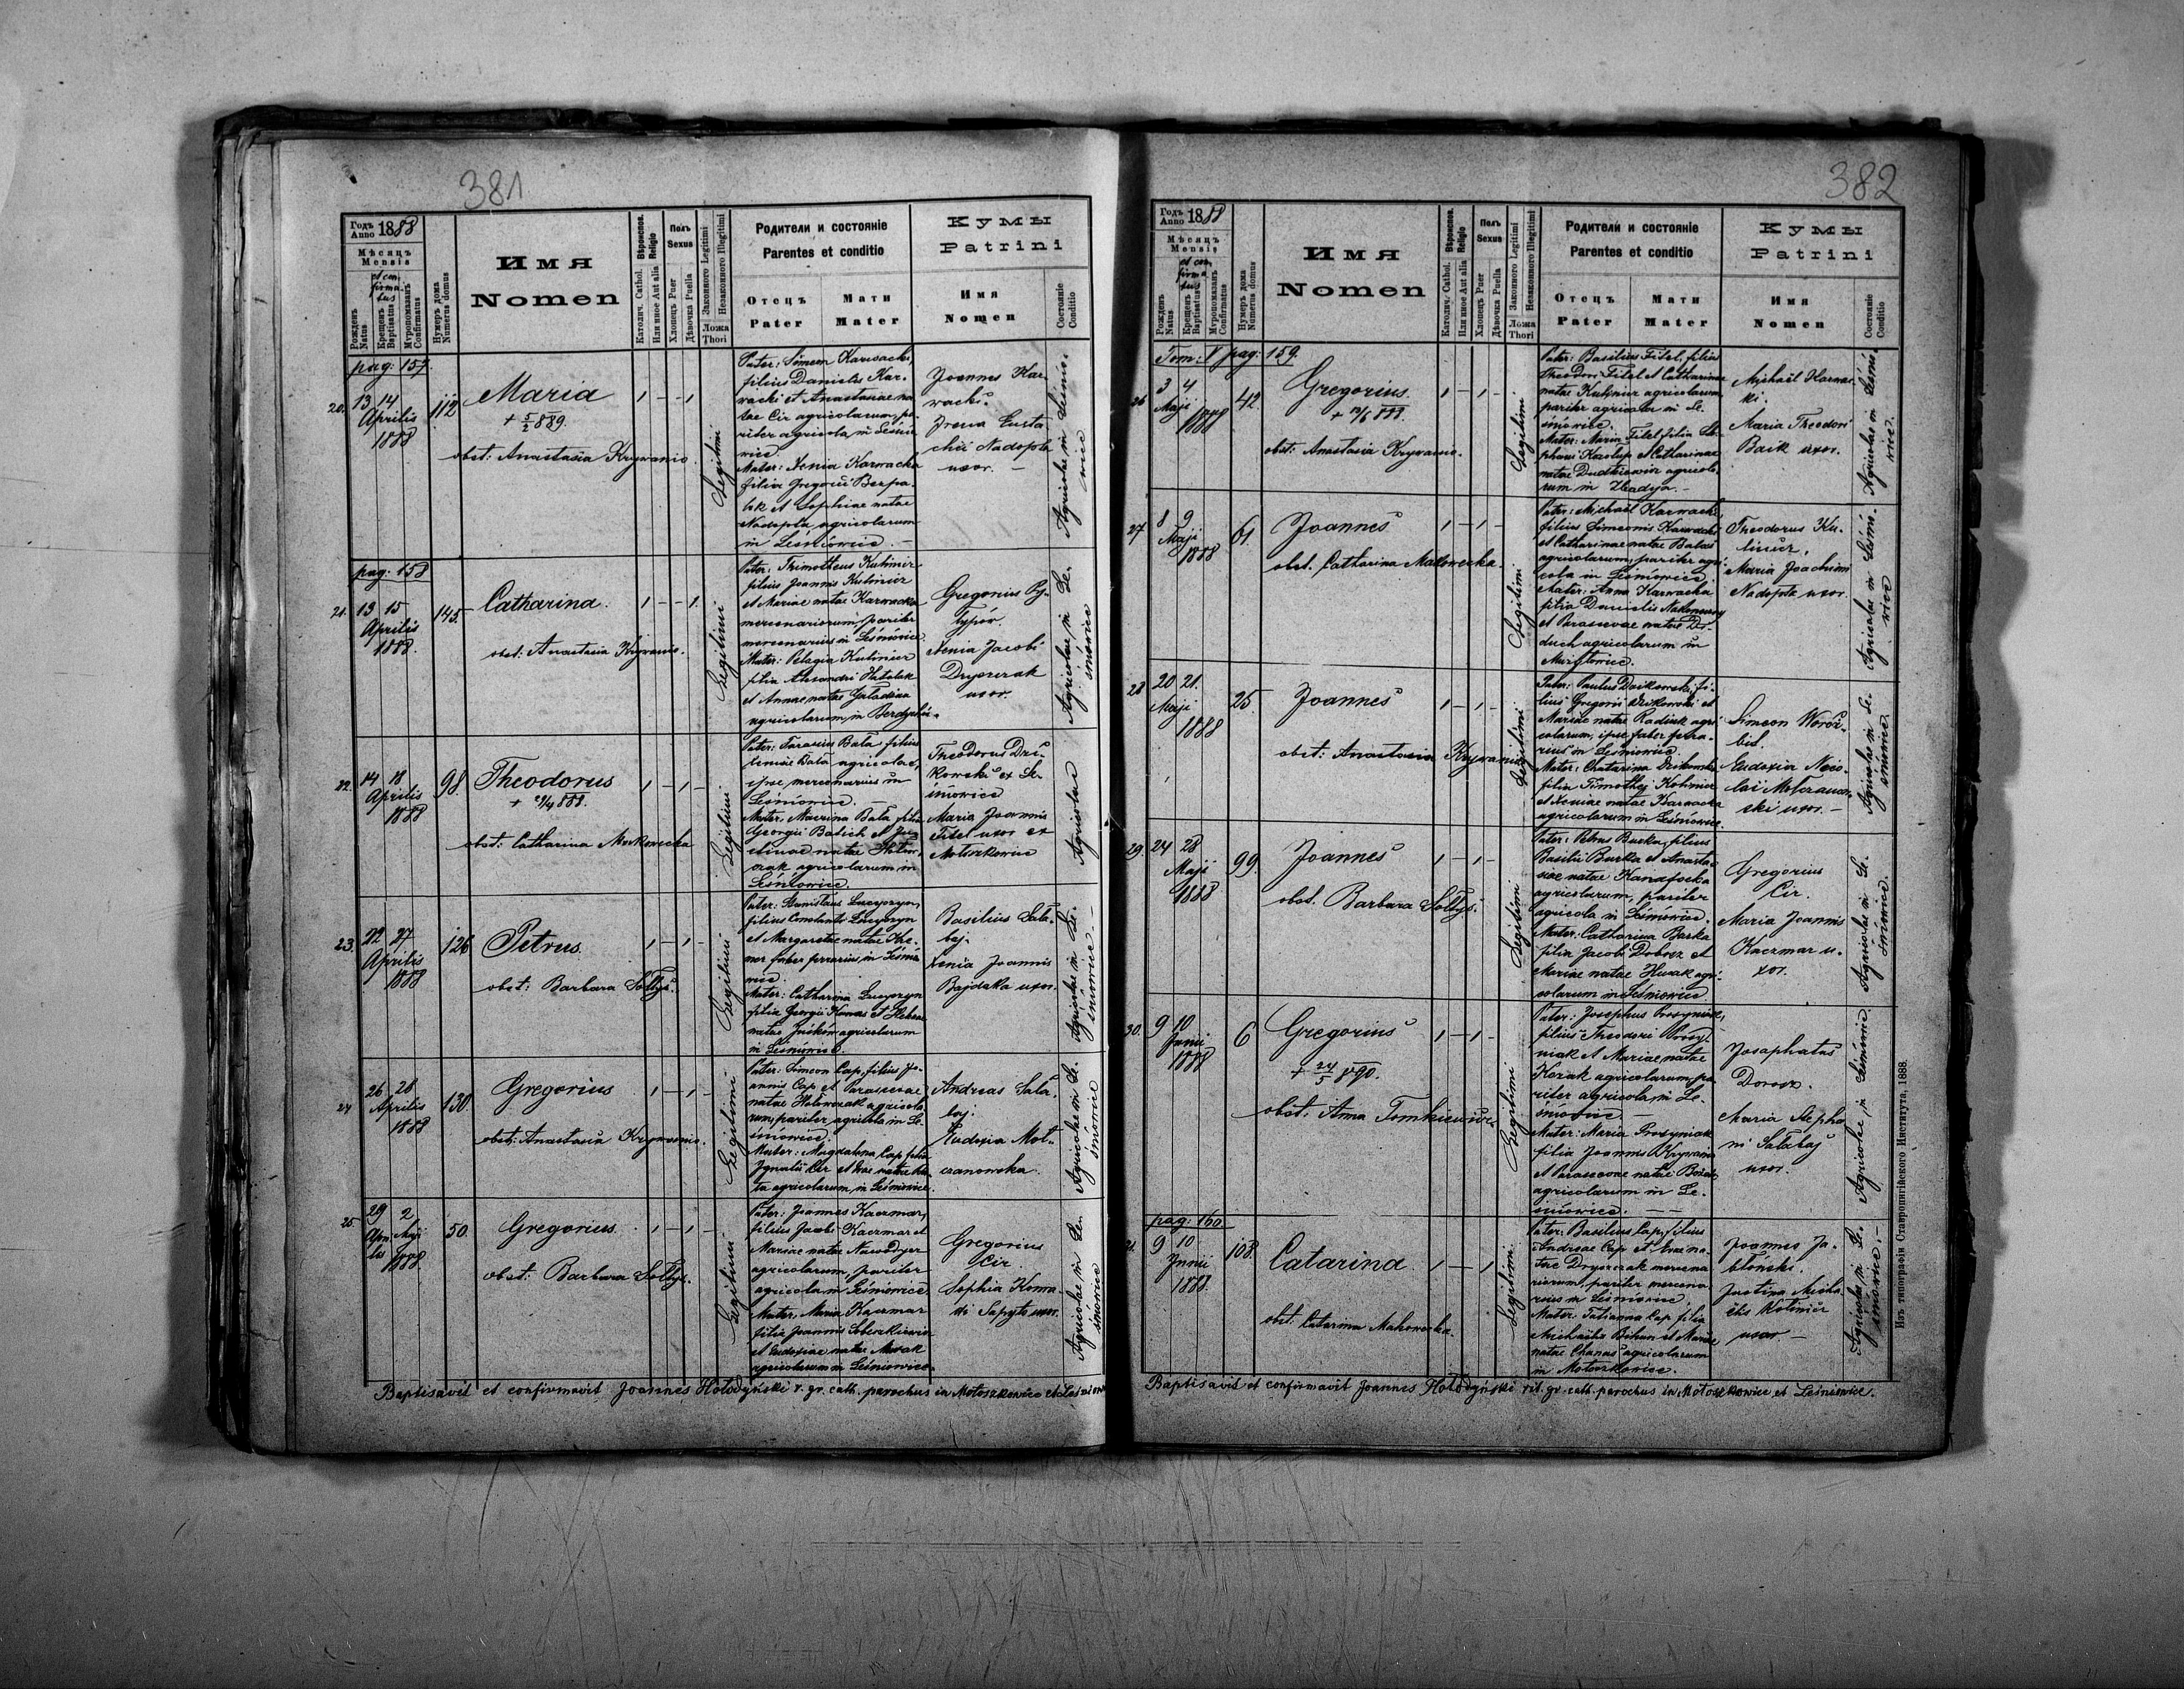 381
Годъ Anno 1888
Мѣсяцъ Mensis
et confirmatus
Рожденъ Natus
Крещенъ Baptisatus
Мѵропомазанъ Confirmatus
Нумеръ дома Numerus domus
Имя
Nomen
Вѣроиспов. Religio
Католич. Cathol.
Или иное Aut alia
Полъ Sexus
Хлопецъ Puer
Дѣвочка Puella
Законного Legitimi
Незаконного Illegitimi
Ложа Thori
Родители и состояніе
Parentes et conditio
Отецъ Мати
Pater Mater
Кумы
Patrini
Имя
Nomen
Состояніе Conditio
pag: 157.
20. 13 14 Aprilis 1888
112
Maria
+ 5/2 889.
obst: Anastasia Krywanio
Legitimi
Pater: Simeon Karwacki,
filius Danielis Kar-
wacki et Anastasiae na-
tae Cir agricolarum, pa-
riter agricola in Leśnio-
wice.
Mater: Xenia Karwacka
filia Gregorii Berpa-
lok et Sophiae natae
Nadopta agricolarum
in Leśniowice. —
Joannes Kar-
wacki.
Irena Eusta-
chii Nadopta
uxor. —
Agricolae in Leśnio-
wice
pag: 158
21. 13 15 Aprilis 1888.
145.
Catharina.
obst: Anastasia Krywanio.
Legitimi
Pater: Timotheus Kulinicz
filius Joannis Kulinicz
et Mariae natae Karwacka
mercenariorum, pariter
mercenarius in Leśniowice.
Mater: Pelagia Kulinicz
filia
et Annae natae
agricolarum in
Gregorius Py-
typór.
Xenia Jacobi
Dryszczak
uxor.
Agricolae in Le-
śniowice
22. 14 18 Aprilis 1888
98.
Theodorus
obst: Catharina Makowecka
Legitimi
Pater: Tarasius Bala filius
Bala agricolae,
ipse mercenarius in
Leśniowice. —
Mater: Maurina Bala filia
Georgii Babich et Ju-
natae
agricolarum in
Leśniowice.
Theodorus Dzi-
kowski ex Le-
śniowice
Maria Joannis
Titel uxor ex
Motoszkowice
Agricolae
23. 22 27 Aprilis 1888
126
Petrus.
obst: Barbara Sołtys.
Legitimi
Pater: Stanislaus
filius Constantii
et Margaretae natae Kre-
mer faber ferrarius in Leśnio-
wice.
Mater: Catharina
filia Georgii et Helenae
natae agricolarum
in Leśniowice.
Basilius Sała-
baj.
Xenia Joannis
Bajdaka uxor.
Agricolae in Le-
śniowice
24. 26 28 Aprilis 1888
130.
Gregorius
obst: Anastasia Krywanio.
Legitimi
Pater: Simeon Cap, filius Jo-
annis Cap et Parascevae
natae Hołowczak agricola-
rum, pariter agricola in Le-
śniowice.
Mater: Magdalena Cap filia
Ignatii Cir et Evae natae
agricolarum in Leśniowice.
Andreas Sała-
baj.
Eudoxia Mot-
czanowska.
Agricolae in Le-
śniowice
25. 29 Aprilis 2 Maji 1888.
50.
Gregorius.
obst: Barbara Sołtys.
Legitimi
Pater: Joannes Kaczmar,
filius Jacobi Kaczmar et
Mariae natae
agricolarum, pariter
agricola in Leśniowice.
Mater: Maria Kaczmar
filia Joannis
et Eudoxiae natae
agricolarum in Leśniowice.
Gregorius
Cir.
Sophia Konra-
di Sapyta uxor.
Agricolae in Le-
śniowice
Baptisavit et confirmavit Joannes Hołodyński r. gr. cath. parochus in Motoszkowice et Leśniowice
382
Годъ Anno 1888
Мѣсяцъ Mensis
et confirmatus
Рожденъ Natus
Крещенъ Baptisatus
Мѵропомазанъ Confirmatus
Нумеръ дома Numerus domus
Имя
Nomen
Вѣроиспов. Religio
Католич. Cathol.
Или иное Aut alia
Полъ Sexus
Хлопецъ Puer
Дѣвочка Puella
Законного Legitimi
Незаконного Illegitimi
Ложа Thori
Родители и состояніе
Parentes et conditio
Отецъ Мати
Pater Mater
Кумы
Patrini
Имя
Nomen
Состояніе Conditio
Tom: V pag: 159.
26 3 4 Maji 1888
42.
Gregorius.
obst: Anastasia Krywanio.
Legitimi
Pater: Basilius Titel, filius
Theodori Titel et Catharinae
natae Kulinicz agricolarum,
pariter agricola in Le-
śniowice.
Mater: Maria Titel filia Ste-
phani et Catharinae
natae Dudkiewicz agricola-
rum in
Michaël Karwac-
ki.
Maria Theodori
Baik uxor.
Agricolae in Leśnio-
wice.
27. 8 9 Maji 1888
61.
Joannes
obst. Catharina Makowecka.
Legitimi
Pater: Michaël Karwacki,
filius Simeonis Karwacki
et Catharinae natae Balas
agricolarum, pariter agri-
cola in Leśniowice.
Mater: Anna Karwacka
filia Danielis
et Parascevae natae
agricolarum in
Theodorus Ku-
linicz.
Maria Joachimi
Nadopta uxor.
Agricolae in Leśnio-
wice
28 20 21. Maji 1888
25.
Joannes
obst: Anastasia Krywanio.
Legitimi
Pater: Paulus Dzikowski, fi-
lius Gregorii Dzikowski et
Mariae natae Radiuk agri-
colarum, ipse faber ferra-
rius in Leśniowice.
Mater: Chatarina Dzikowska
filia Timothei Kulinicz
et Xeniae natae Karwacka
agricolarum in Leśniowice.
Simeon Woroż-
bit.
Eudoxia Nico-
lai Motczanow-
ski uxor. —
Agricolae in Le-
śniowice
29. 24 28 Maji 1888
99.
Joannes
obst. Barbara Sołtys.
Legitimi
Pater: Petrus Burka, filius
Basilii Burka et Anasta-
siae natae
agricolarum, pariter
agricola in Leśniowice.
Mater: Catharina Burka
filia Jacobi Dobosz et
Mariae natae Husak agri-
colarum in Leśniowice
Gregorius
Cir.
Maria Joannis
Kaczmar u-
xor.
Agricolae in Le-
śniowice.
30. 9 10 Junii 1888
6
Gregorius
+ 24/5 890.
obst: Anna Tomkiewicz.
Legitimi
Pater: Josephus Prosyniak,
filius Theodori Prosy-
niak et Mariae natae
Kozak agricolarum, pa-
riter agricola in Le-
śniowice. —
Mater: Maria Prosyniak
filia Joannis Krywanio
et Parascevae natae
agricolarum in Le-
śniowice. —
Josaphatus
Dorosz.
Maria Stepha-
ni Sałabaj
uxor.
Agricolae in Leśniowice
pag: 160
31. 9 10 Junii 1888.
108.
Catarina.
obst: Catarina Makowecka.
Legitimi
Pater: Basilius Cap, filius
Andreae Cap et Evae na-
tae Dryszczak mercena-
riorum, pariter mercena-
rius in Leśniowice.
Mater: Tatianna Cap filia
Michaëlis Bihun et Mariae
natae Chanas agricolarum
in Motoszkowice.
Joannes Ja-
błoński.
Justina Micha-
ëlis Kulinicz
uxor —
Agricolae in Le-
śniowice. —
Baptisavit et confirmavit Joannes Hołodyński rit. gr. cath. parochus in Motoszkowice et Leśniowice.
Изъ типографіи Ставропигійского Института. 1888.